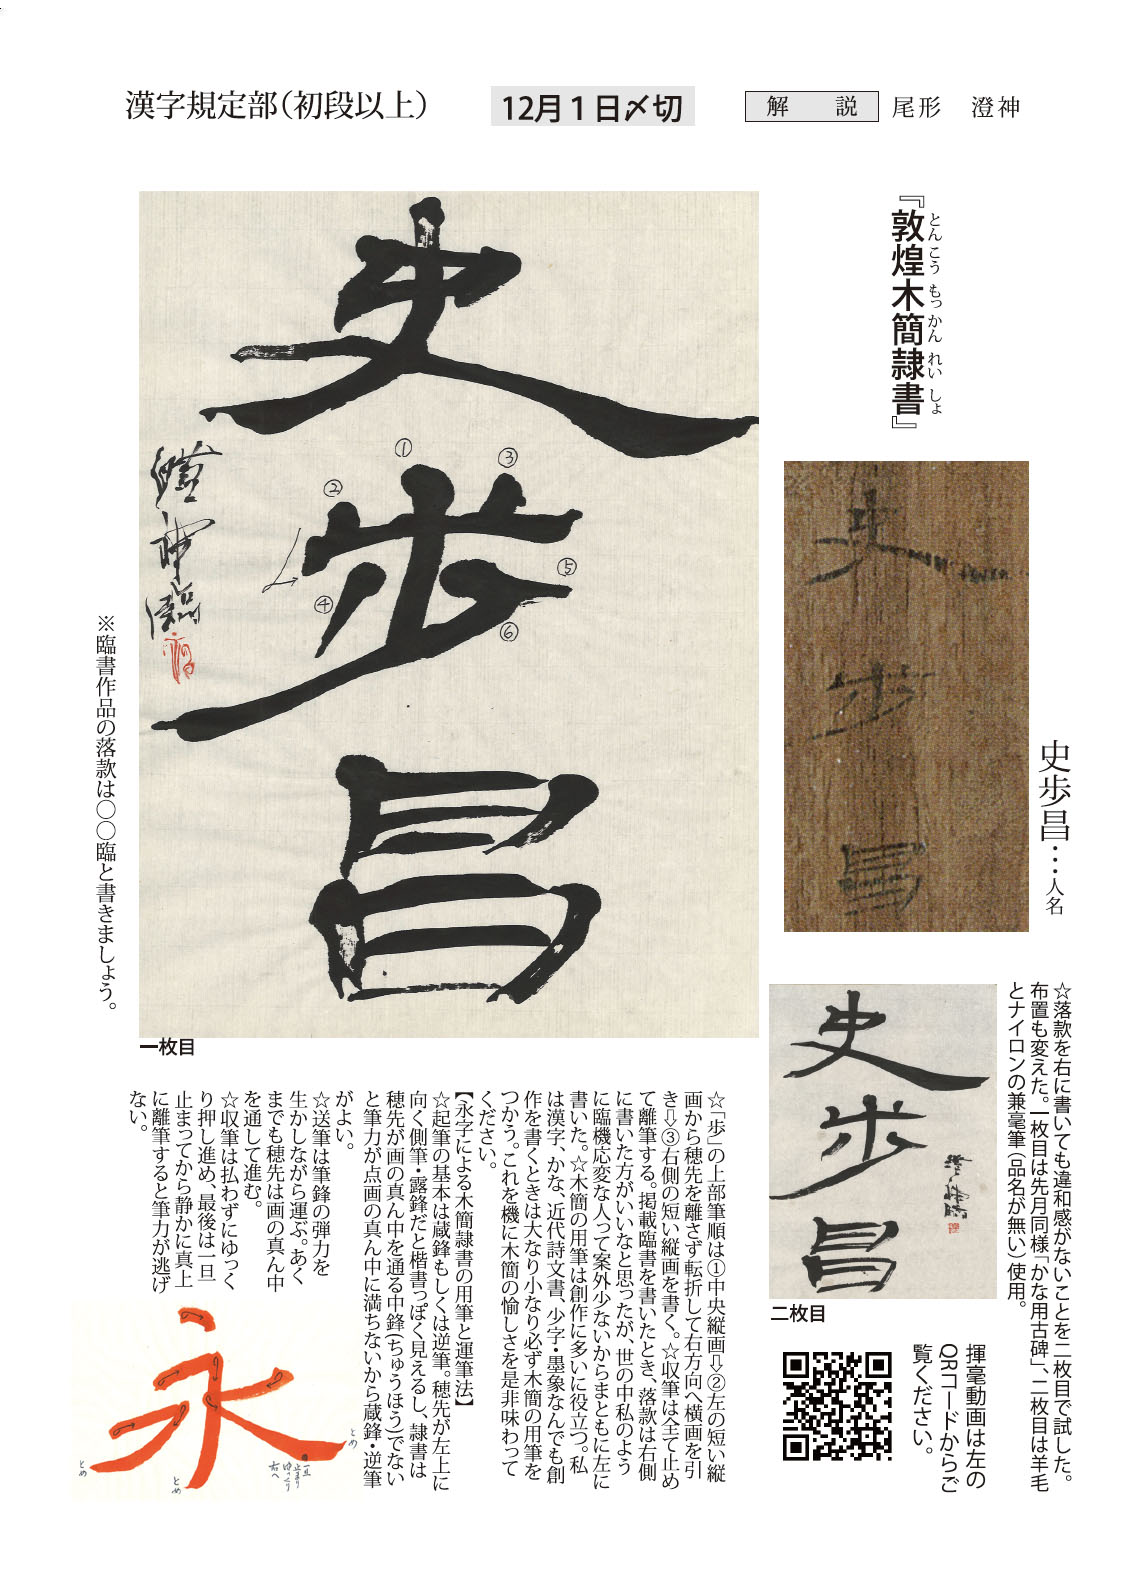 漢字規定部（初段以上）
12月１日〆切
解　説
尾形　澄神
『敦煌木簡隷書』
とんこうもっかんれいしょ
史歩昌…人名
史
歩
昌
①
②
③
④
⑤
⑥
澄神臨
※臨書作品の落款は○○臨と書きましょう。
一枚目
☆落款を右に書いても違和感がないことを二枚目で試した。
布置も変えた。一枚目は先月同様「かな用古碑」、二枚目は羊毛
とナイロンの兼毫筆（品名が無い）使用。
史
歩
昌
澄神臨
二枚目
揮毫動画は左の
QRコードからご
覧ください。
☆「歩」の上部筆順は①中央縦画⇨②左の短い縦
画から穂先を離さず転折して右方向へ横画を引
き⇨③右側の短い縦画を書く。☆収筆は全て止め
て離筆する。掲載臨書を書いたとき、落款は右側
に書いた方がいいなと思ったが、世の中私のよう
に臨機応変な人って案外少ないからまともに左に
書いた。☆木簡の用筆は創作に多いに役立つ。私
は漢字、かな、近代詩文書、少字・墨象なんでも創
作を書くときは大なり小なり必ず木簡の用筆を
つかう。これを機に木簡の愉しさを是非味わって
ください。
【永字による木簡隷書の用筆と運筆法】
☆起筆の基本は蔵鋒もしくは逆筆。穂先が左上に
向く側筆・露鋒だと楷書っぽく見えるし、隷書は
穂先が画の真ん中を通る中鋒（ちゅうほう）でない
と筆力が点画の真ん中に満ちないから蔵鋒・逆筆
がよい。
☆送筆は筆鋒の弾力を
生かしながら運ぶ。あく
までも穂先は画の真ん中
を通して進む。
☆収筆は払わずにゆっく
り押し進め、最後は一旦
止まってから静かに真上
に離筆すると筆力が逃げ
ない。
永
とめ
とめ
とめ
一旦
止まり
ゆっくり
右へ